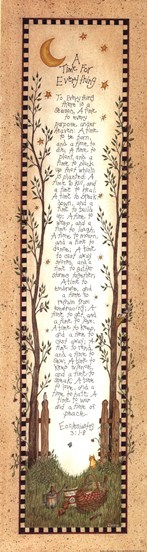 A
Time For
Everything
To Everything
there is a
season, A time
to every
purpose under
heaven: A time
to be born,
and a time to
die; A time to
plant, and a
time to pluck
up that which
is planted; A
time to kill, and
a time to heal;
A time to break
down, and a
time to build
up; A time to
weep, and a
time to laugh;
A time to mourn,
and a time to
dance; A time
to cast away
stones, and a
time to gather
stones together;
A time to
embrace, and
a time to
refrain from
embracing; A
time to get, and
a time to lose;
A time to keep,
and a time to
cast away; A
time to rend,
and a time to
sew; A time to
keep silence,
and a time to
speak; A time
to love, and a
time to hate; A
time to war
and a time of
peace.
Ecclesiastes
3:1-8